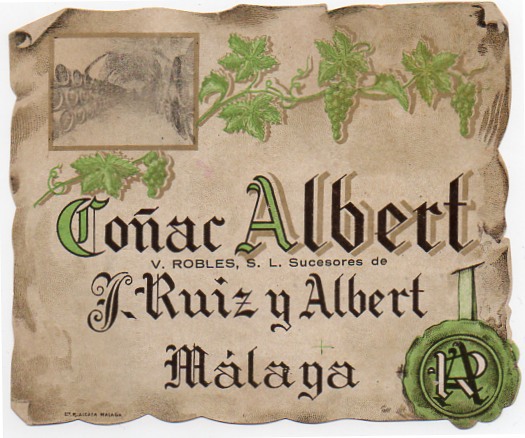 Coñac Albert
V. ROBLES, S. L. Sucesores de
J. Ruiz y Albert
Málaga
RA
MALAGA